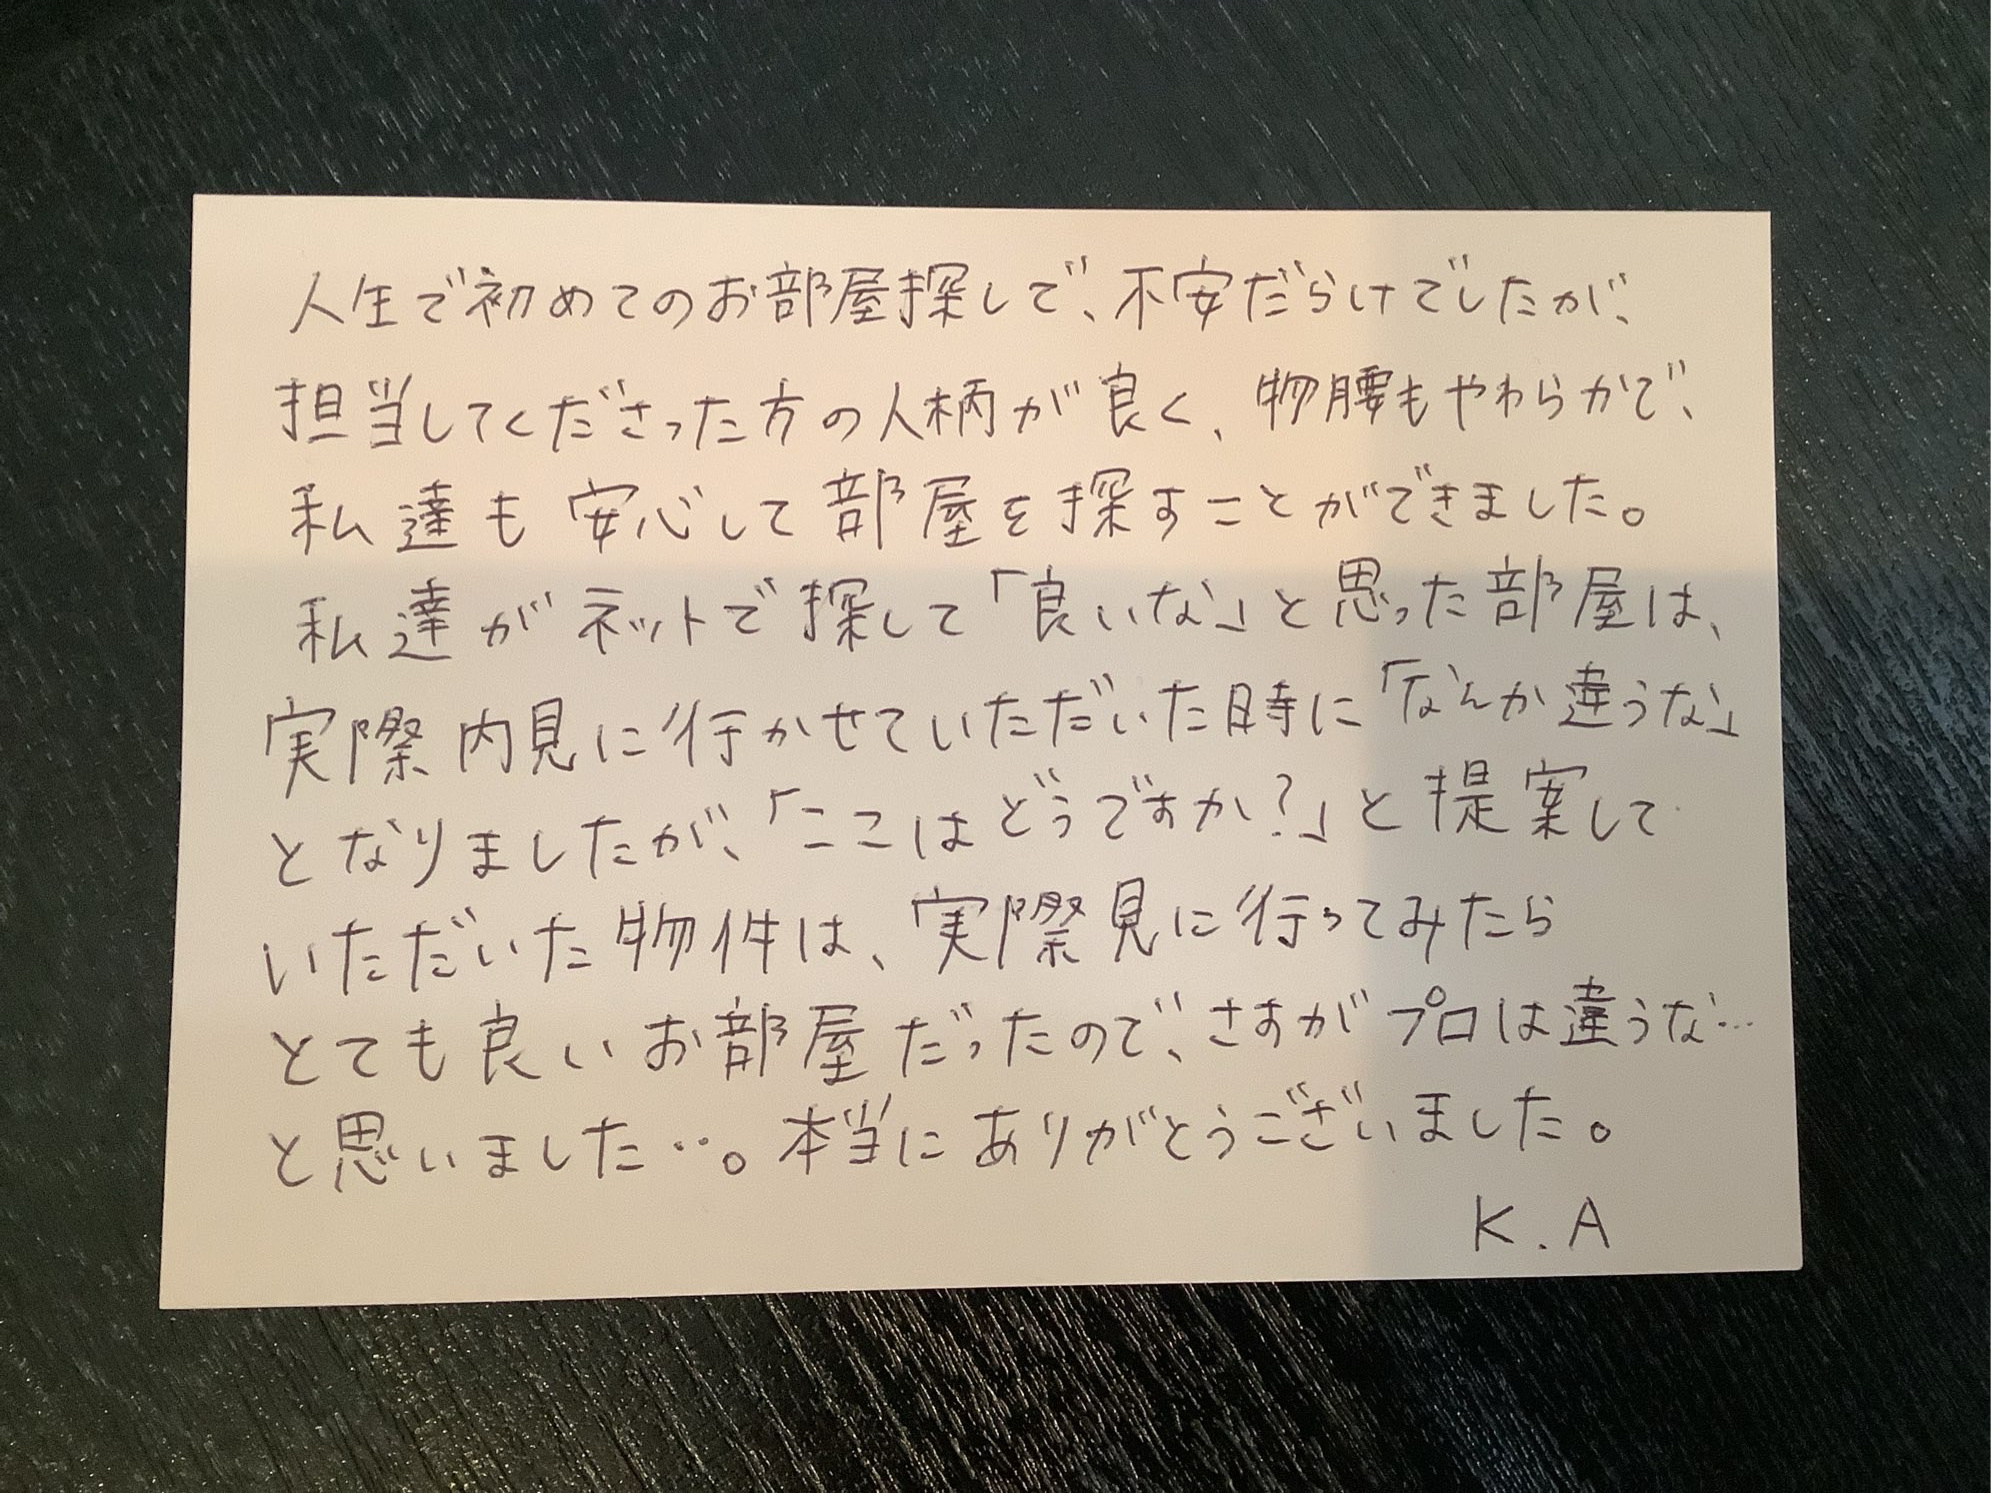 人生で初めてのお部屋探しで、不安だらけでしたが、
担当してくださった方の人柄が良く、物腰もやわらかで、
私達も安心して部屋を探すことができました。
私達がネットで探して「良いな」と思った部屋は、
実際内見に行かせていただいた時に「なんか違うな」
となりましたが、「ここはどうですか?」と提案して
いただいた物件は、実際見に行ってみたら
とても良いお部屋だったので、さすがプロは違うな…
と思いました…。本当にありがとうございました。
K.A